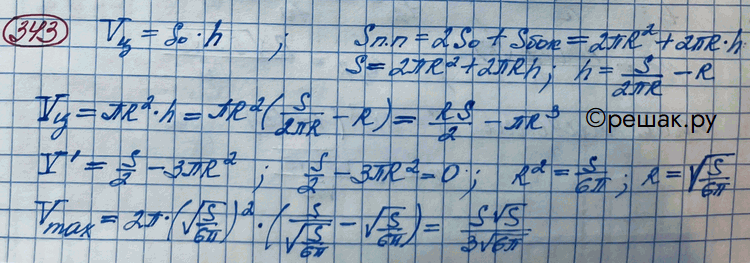 343 Vц = So · h ; Sп.п = 2So + Sбок = 2πR² + 2πR·h
S = 2πR² + 2πRh ; h = S/2πR − R
Vц = πR²·h = πR²(S/2πR − R) = RS/2 − πR³
©решак.ру
V' = S/2 − 3πR² ; S/2 − 3πR² = 0 ; R² = S/6π ; R = √(S/6π)
Vmax = 2π·(√(S/6π))²·(S/√(S/6π) − √(S/6π)) = S√S/3√6π